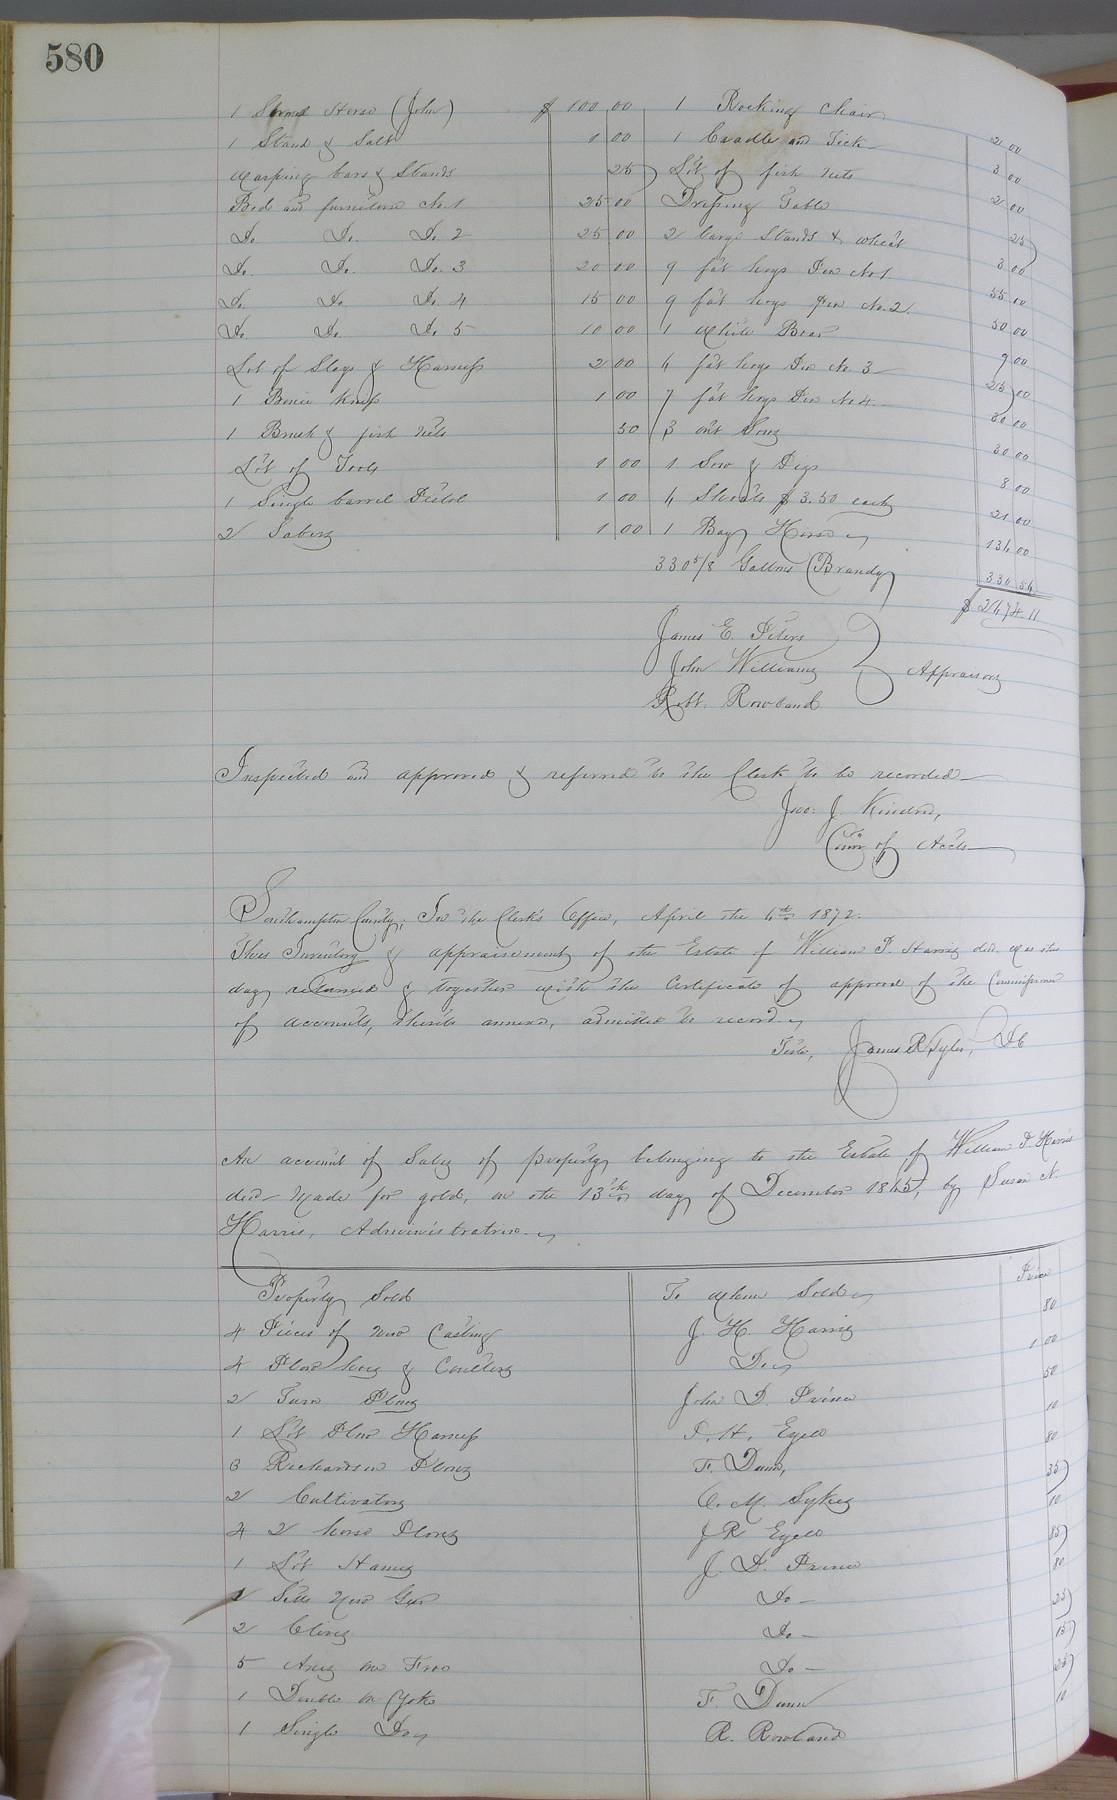 580
1 Sorrel Horse (John) $ 100 00
1 Stand & Salt 1 00
Warping bars & Stands 25
Bed and furniture No. 1 25 00
Do. Do. Do. 2 25 00
Do. Do. Do. 3 20 00
Do. Do. Do. 4 15 00
Do. Do. Do. 5 10 00
Lot of Slays & Harness 2 00
1 1 00
1 & fish Nets 50
Lot of Tools 1 00
1 Single barrel Pistol 1 00
2 Sabers 1 00
1 Rocking Chair 2 00
1 Cradle and Tick 3 00
Lot of fish nets 2 00
Dressing Table 25
2 large Stands & wheat 3 00
9 fat hogs Pen No 1 55 00
9 fat hogs Pen No. 2. 50 00
1 White Boar 9 00
6 fat hogs Pen No. 3 25 00
7 fat hogs Pen No 4. 30 00
3 out Sows 30 00
1 Sow & Pigs 8 00
6 Shoats $ 3.50 each 21 00
1 Bay Horse 136 00
330 5/8 Gallons Brandy 330 56
$ 2474.11
James E. Peters
John Williams
Robt. Rowland
Appraisors
Inspected and approved & referred to the Clerk to be recorded
Jno: J. Kindred,
Comr of Accts
Southampton County; In the Clerk's Office, April the 6th 1872.
This Inventory & appraisement of the Estate of William P. Harris decd. was this
day returned & together with the Certificate of approval of the Commissioner
of accounts, thereto annexed, admitted to record
Teste, James R. Tyler, DC
An account of Sales of property belonging to the Estate of William P. Harris
decd. Made for gold, on the 13th day of December 1865, by Susan N.
Harris, Administratrix
Property Sold To whom Sold Price
4 Pieces of new Casting J. H. Harris 80
4 Plow hoes & Coulters Do 1 00
2 Turn Plows John D. Prince 50
1 Lot Plow Harness P. H. Ezell 10
3 Richardson Plows F. Dunn, 80
2 Cultivators O. M. Sykes 35
4 2 horse Plows J R Ezell 10
1 Lot Hames J. D. Prince 85
2 Setts New Gear Do 80
2 Clevis Do 25
5 Axes one Froe Do 15
1 Double ox Yoke F. Dunn 25
1 Single Do R. Rowland 10